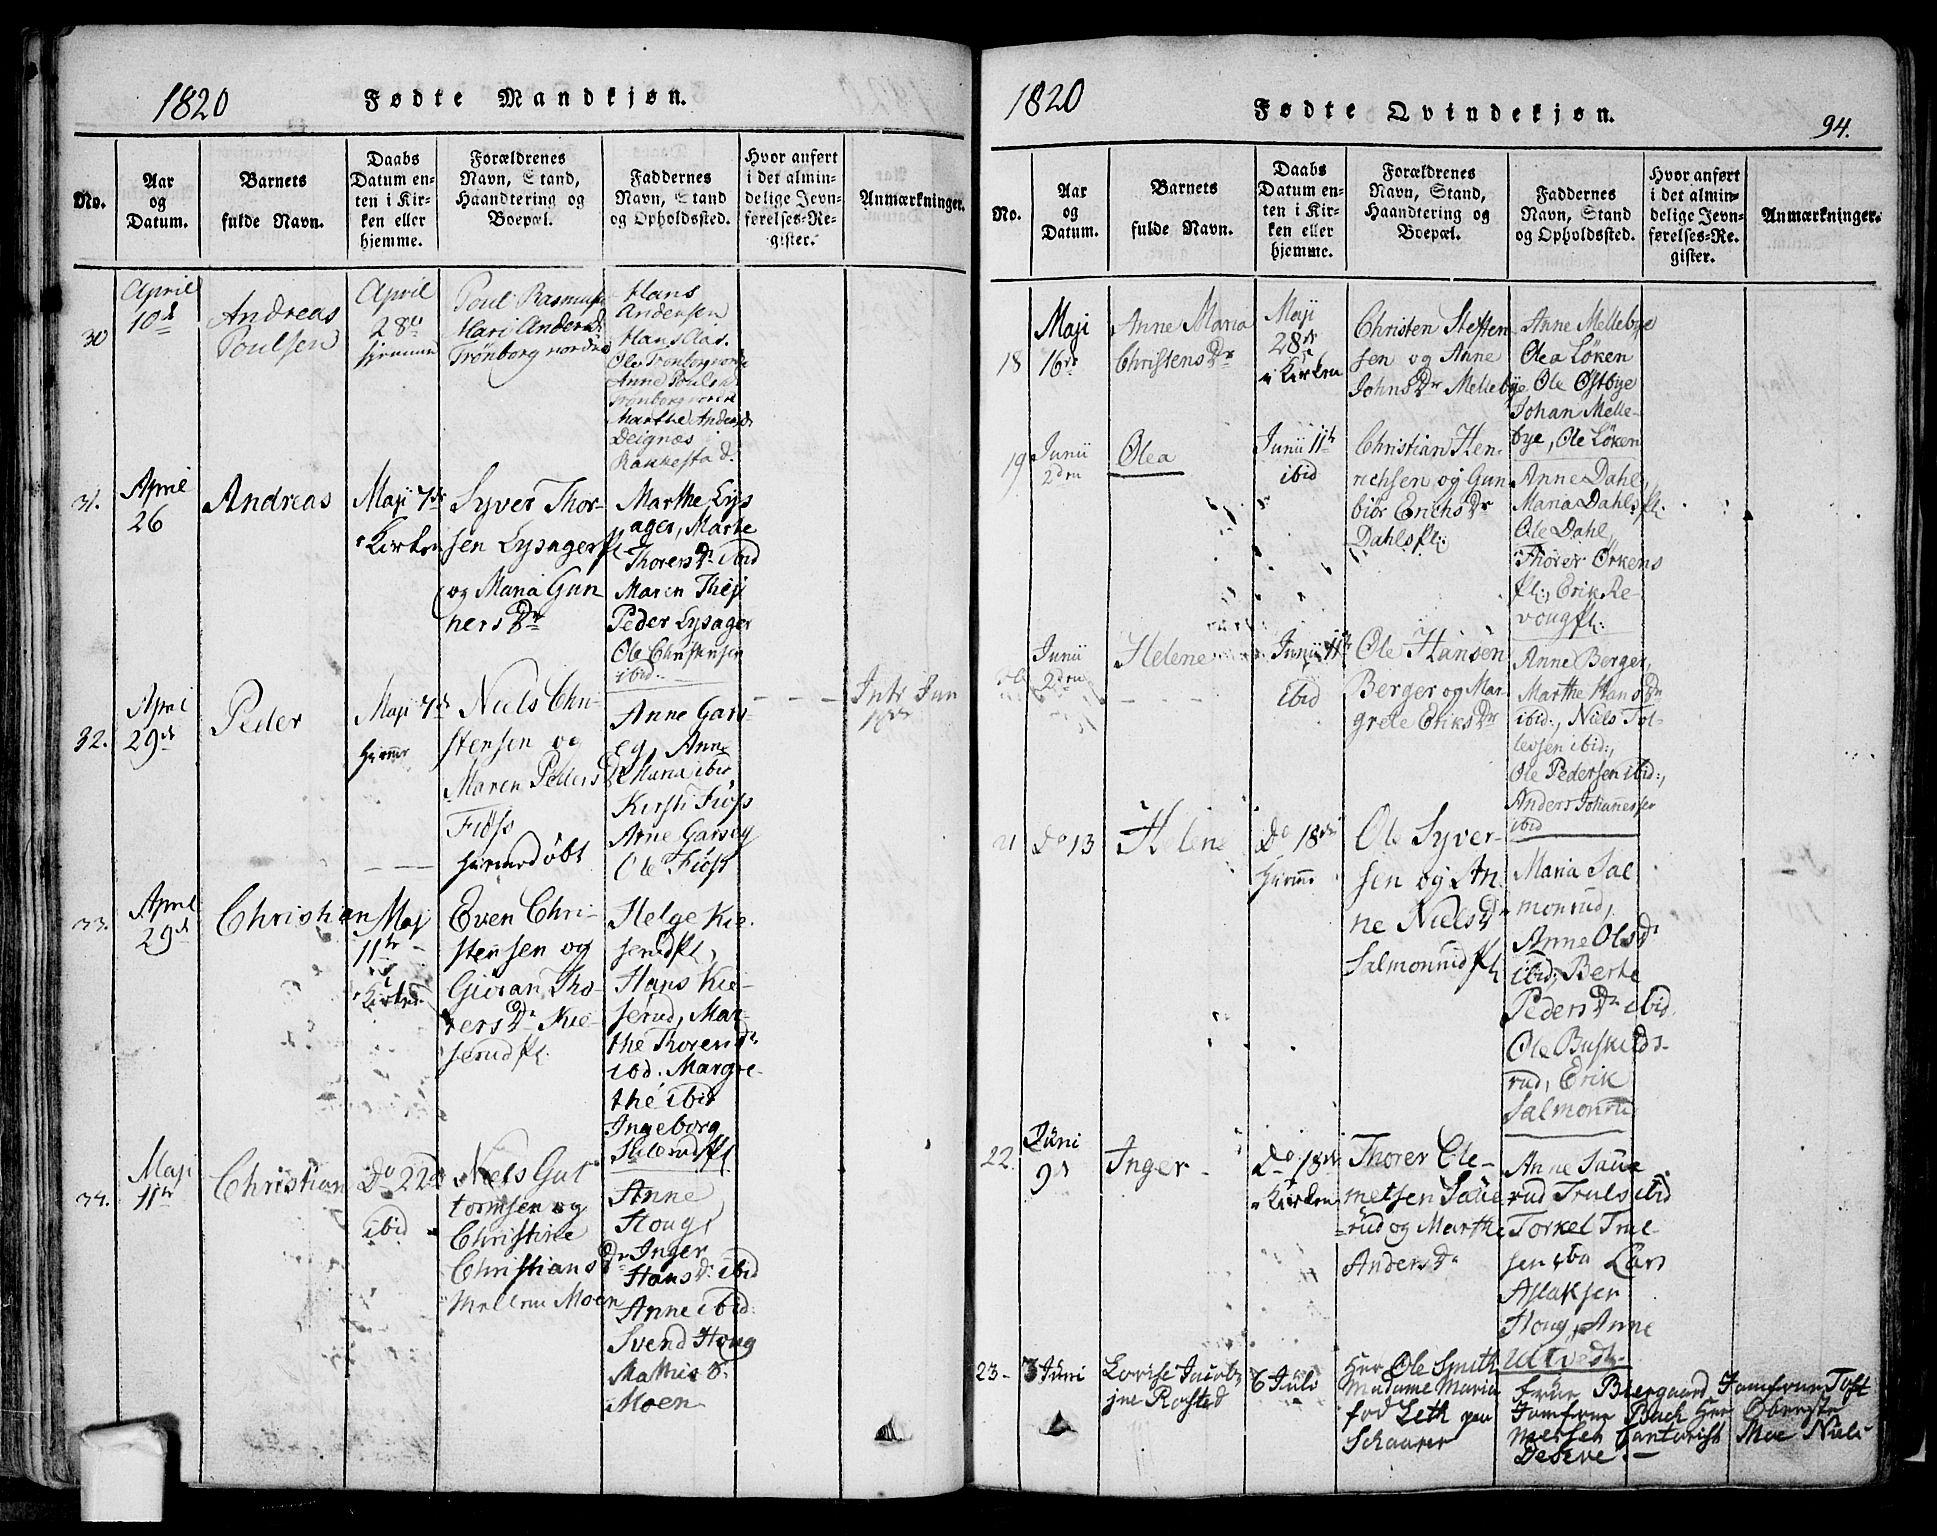 1820 Fødte Mandkjøn.
No.
Aar
og
Datum.
Barnets
fulde Navn.
Daabs
Datum en-
ten i Kir-
ken eller
hjemme.
Forældrenes
Navn, Stand,
Haandtering og
Boepæl.
Faddernes
Navn, Stand
og Opholdssted.
Hvor anført
i det almin-
delige Jevn-
førelses-Re-
gister.
Anmærkninger.
30
April
10de
Andreas
Poulsen
April
28de
hjemme
Poul Rasmus
Mari Anders
Trönborg nordre
Hans
Andersen
Hans Aas.
Ole Trönborg
Anne Pouls
Trönborg
Marthe Anders
Deignæs
Rakkestad.
31.
April
26
Andreas
Maji 7de
Kirken
Syver Thor-
sen Lysager pl
og Maria Gun
ners Dr
Marthe Lys
ager, Marte
Thorers Dr ibid
Maren Theji
Peder Lysager
Ole Christensen
ibid.
32.
April
29de
Peder
Maji 7de
hjemme
Niels Chri-
stensen og
Maren Peders Dr
Fiöss
hjemmedöbt
Anne Gars-
eg, Anne
Maria ibid
Kirsti Fiöss
Arne Garseg
Ole Fiöss
Intr Jun
33.
April
29de
Christian
Maj
11te
Kirken
Even Chri-
stensen og
Giöran Tho-
rers Dr Kie-
serud pl.
Helge Kie-
serud pl,
Hans Kie-
serud, Mar-
the Thorers Dr
ibd. Margre-
the ibid
Ingeborg
34.
Maji
11te
Christian
Do 22de
ibid
Niels Gut
tormsen og
Christine
Christians Dr
Moen
Anne
Houg,
Inger
Hans Dr ibid
Anne ibid
Svend Houg
Mathis
Moen
1820 Fødte Qvindekjøn. 94.
No.
Aar
og
Datum.
Barnets
fulde Navn.
Daabs
Datum en-
ten i Kir-
ken eller
hjemme.
Forældrenes
Navn, Stand,
Haandtering og
Boepæl.
Faddernes
Navn, Stand
og Opholdssted.
Hvor anført
i det almin-
delige Jevn-
førelses-Re-
gister.
Anmærkninger.
18
Maji
16de
Anne Maria
Christens Dr
Maji
28de
i Kirken
Christen Steffen
sen og Anne
Johns Dr Mellebye
Anne Mellebye
Olea Löken
Ole Östbye
Johan Melle-
bye, Ole Löken
19
Junii
2den
Olea
Junii 11te
ibid
Christian Hen
richsen og Gun
biör Erichs Dr
Dahls pl:
Anne Dahl,
Maria Dahls pl:
Ole Dahl,
Thorer Örkens
pl:, Erik Re-
voug pl:
20
Junii
2den
Helene
Junii 11te
ibid
Ole Hansen
Berger og Mar
grete Eriks Dr
Anne Berger,
Marthe Hans Dr
ibid:, Niels Tol-
levsen ibid:,
Ole Pedersen ibid:,
Anders Johannessen
ibid
21
Do 13
Helene
Do 18de
hjemme
Ole Syver-
sen og An
ne Niels Dr
Salmonrud pl
Maria Sal
monrud,
Anne Ols Dr
ibid; Berte
Peders Dr ibid
Ole Buskilds-
rud, Erik
Salmonru
22.
Juni
9d
Inger
Do 18de
i Kirken
Thorer Cle-
metsen Saue
rud og Marthe
Anders Dr
Anne Saue
rud Truls ibid
Torkel Trul
sen ibn Lars
Aslaksen
Houg, Anne
Utvedt
23-
3 Juni
Lovise Jacob-
ine Rosted
6 Juli
Herr Ole Smith
Madame Maria
föd Leth paa
Schaarer
Frue Biergaard Jomfrue Toft
Jomfrue Bach Her Oberste
Moe Niels